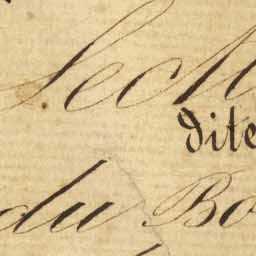 Sect
dite
du Bo